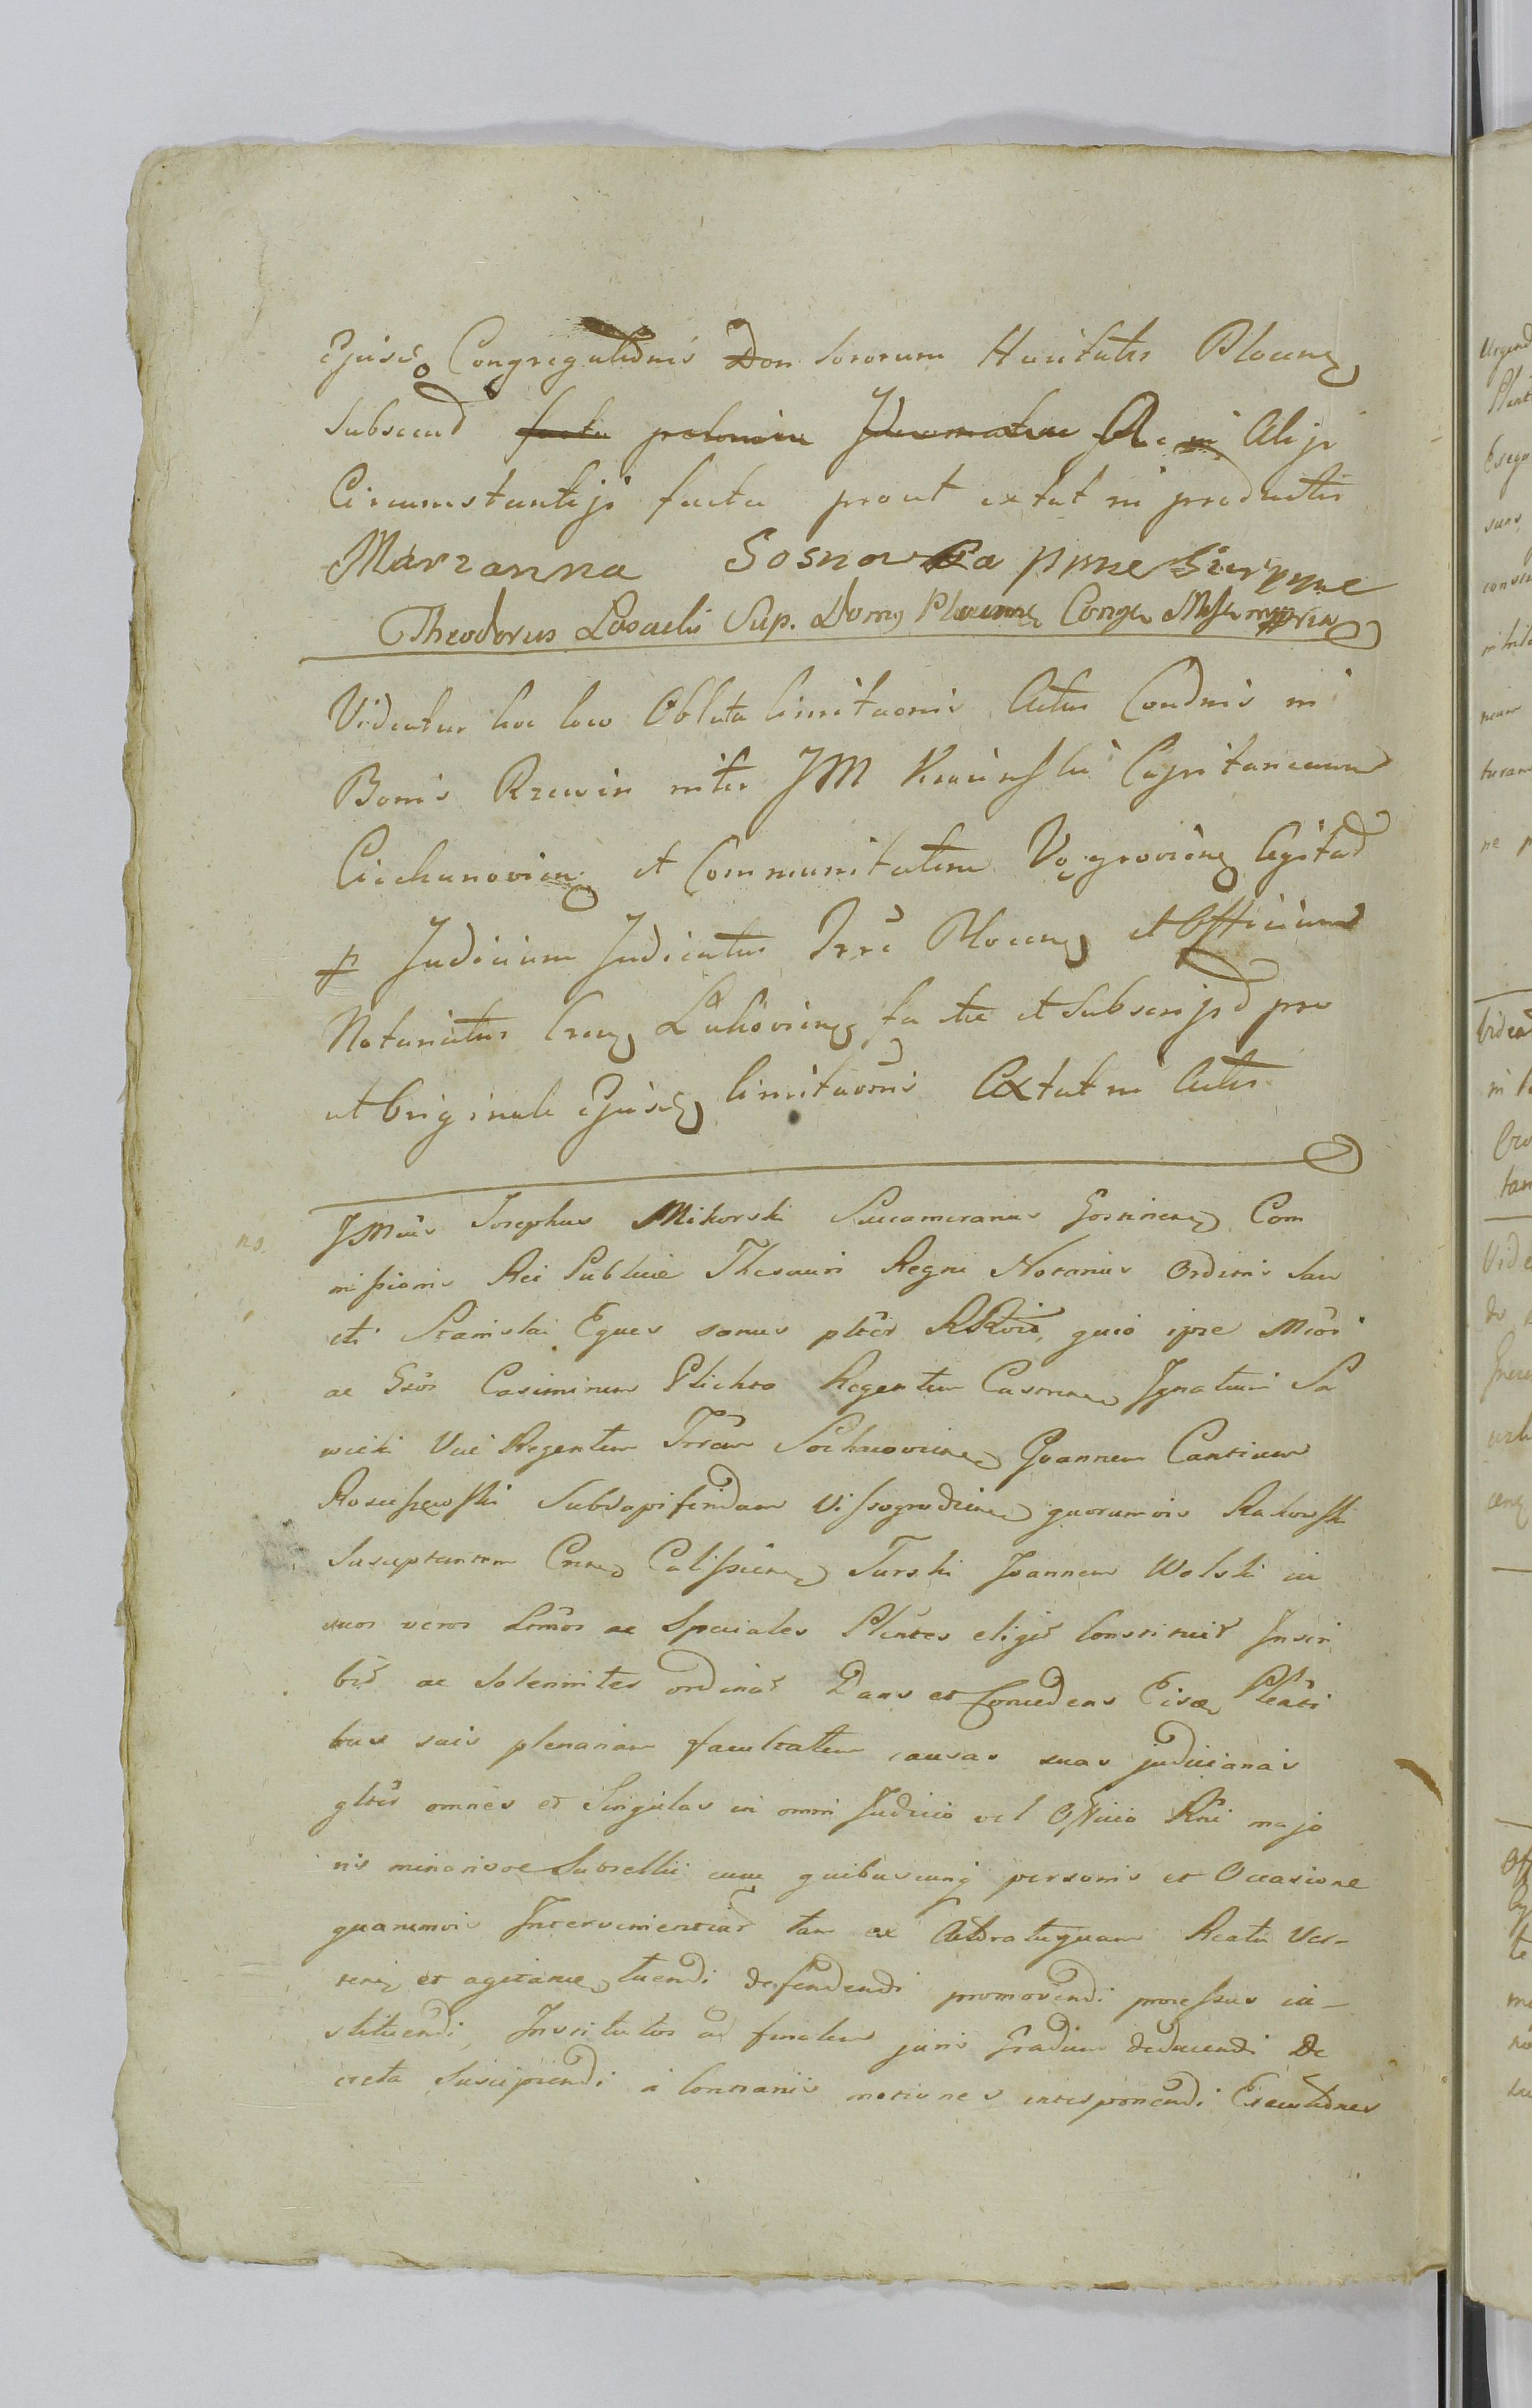 Ejusd Congregationis Don Sororum Haritatis Plocens
Subsecud facta Al ijs
Circumstantijs facta prout extat in productis
Marranna Sosnowska
Theodorus Losacki Sup. Domq Plocens Congr
Videatur hoc loco Oblata limitaonis Actus Condnis in
Bonis Rzewin inter JM Capitaneum
Ciechanoviens et Communitatem Vęgroviens Agitad
p Judicium Judicatus Trre Plocens et Officium
Notariatus Crens Lukoviens factae et Subscripd pro
ut Originale Ejusd limitaonis Extat in Actis
ns.
JMcus Josephus Mikorski Succamerarius Gostinens Com
missionis Rei Publicae Thesauri Regni Notarius Ordinis San
cti Stanislai Eques sanus quia ipse Mcos
ac Gsos Casimirum Plichta Regentem Castrens Ignatium Sa
wicki Vice Regentem Trrem Sochacoviens Joannem Cantium
Subdapiferidam Vissogrodiens quorumvis Rakowski
Susceptantem Crens Calissiens Turski Joannem Wolski in
suos veros Lrmos ac Speciales Plentes eligit Constituit Inscri
bit ac Solenniter ordinat Dans et Concedens Eisd Plenti
bus suis plenariam facultatem causas suas judiciarias
gltr omnes et Singulas in omni Judicio vel Officio Rni majo
ris minorisve Subsellii cum quibuscunq personis et Occasione
quarumvis Intervenientiar tam ex Actoratu quam Reatu Ver-
tens et agitans tuendi defendendi promovendi processus in-
stituendi Institutos ad finalem juris Gradum deducendi De
creta Suscipiendi a Contrariis motiones interponendi Executiones